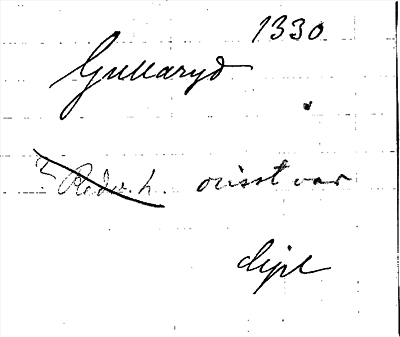 1330
Gullaryd
Redv. h. ovisst var
dipl